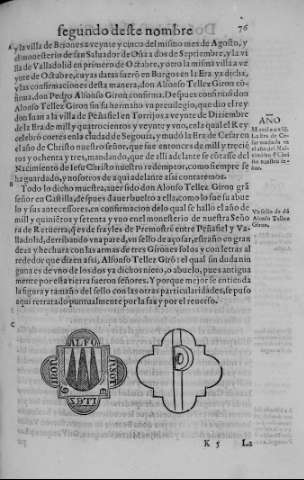 segundo deste nombre 76
y la villa de Briones a veynte y cinco del mismo mes de Agosto, y
el monesterio de san Saluador de Oña a dos de Septiembre, y la vi
lla de Valladolid en primero de Octubre, y otro la misma villa a ve
ynte de Octubre, cuyas datas fuerō en Burgos en la Era ya dicha,
y las confirmaciones desta manera, don Alfonso Tellez Giron cō
firma, don Pedro Alfonso Giron confirma. Despues confirma don
Alfonso Tellez Giron sin su hermano vn preuilegio, que dio el rey
don Iuan a la villa de Peñafiel en Torrijos a veynte de Diziembre
de la Era de mill y quatrocientos y veynte y vno, en la qual el Rey
celebró cortes en la ciudad de Segouia, y mudó la Era de Cesar en
el año de Christo nuestro señor, que fue entonces de mill y trecie
tos y ochenta y tres, mandando, que de alli adelante se cōtasse del
Nacimiento de Iesu Christo nuestro redemptor, como siempre se
ha guardado, y nosotros de aqui adelante assi contaremos.
Todo lo dicho muestra, auer sido don Alonso Tellez Giron grā
señor en Castilla, despues de auer buelto a ella, como lo fue su abue
lo y sus antecessores, en confirmacion delo qual se halló el año de
mill y quinientos y setenta y vno en el monesterio de nuestra Seño
ra de Retuerta, q̄ es de frayles de Premostré entre Peñafiel y Va-
lladolid, derribando vna pared, vn sello de açofar, assaz ō gran
deza y hechura con las armas de tres Girones solos y con letras al
rededor que dizen assi, Alfonso Tellez Girō: el qual sin duda nin
guna es de vno de los dos ya dichos nieto, o abuelo, pues antigua
mente por esta tierra fueron señores. Y porque mejor se entienda
la figura y tamaño del sello con las otras particularidades, se puso
aqui retratado puntualmente por la faz y por el reuerso.
AÑO
Vn sello de dō
Alonso Tellez
Giron.
ALFO
K 5 La